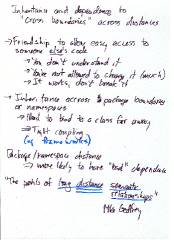 Inheritance and dependence to
"cross boundaries" across distances
→ Friendship to allow easy access to
someone else's code
→ You don't understand it
→ You're not allowed to change it (much)
→ It works, don't break it
→ Inheritance across package boundaries
or namespaces
→ Hard to bind to a class far away
→ Tight coupling
(eg frameworks)
Package/namespace distance
→ more likely to have "bad" dependence
"The perils of long distance
relationships"
Mike Godfrey